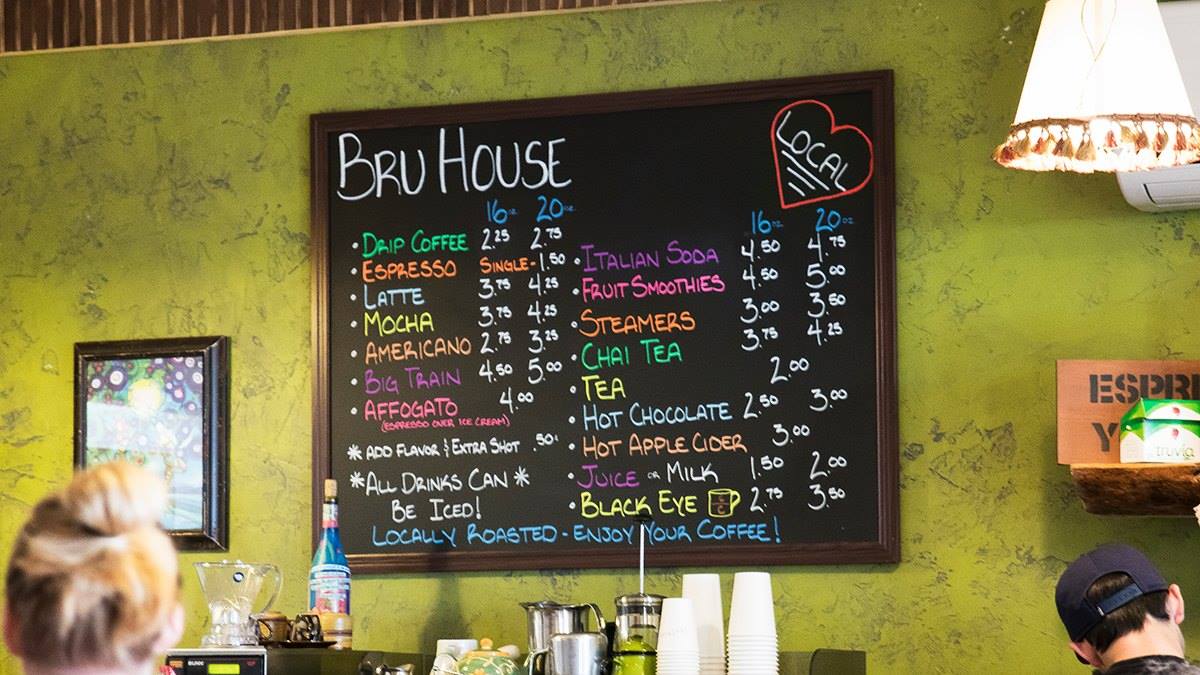 BRU HOUSE
LOCAL
16oz 20oz
• DRIP COFFEE 2.25 2.75
• ESPRESSO SINGLE - 1.50
• LATTE 3.75 4.25
• MOCHA 3.75 4.25
• AMERICANO 2.75 3.25
• BIG TRAIN 4.50 5.00
• AFFOGATO 4.00
(ESPRESSO OVER ICE CREAM)
* ADD FLAVOR & EXTRA SHOT .50¢
*ALL DRINKS CAN *
BE ICED!
16oz 20oz
• ITALIAN SODA 4.50 4.75
• FRUIT SMOOTHIES 4.50 5.00
• STEAMERS 3.00 3.50
• CHAI TEA 3.75 4.25
• TEA 2.00
• HOT CHOCOLATE 2.50 3.00
• HOT APPLE CIDER 3.00
• JUICE OR MILK 1.50 2.00
• BLACK EYE 2.75 3.50
LOCALLY ROASTED - ENJOY YOUR COFFEE!
ESPR
Y
truvia
BUNN